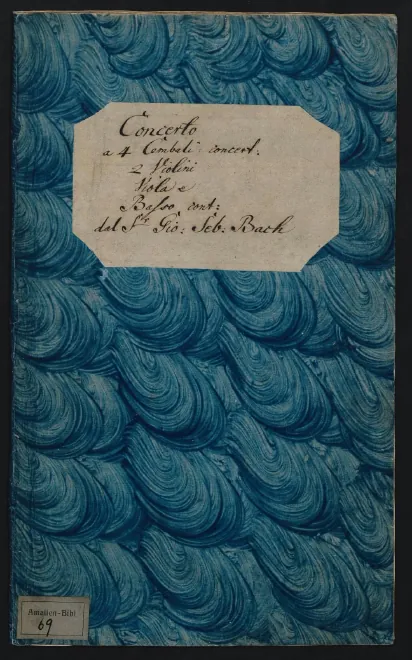 Concerto
a 4 Cembali concert:
2 Violini
Viola e
Basso cont:
dal Sr. Gio: Seb: Bach
Amalien-Bibl
69